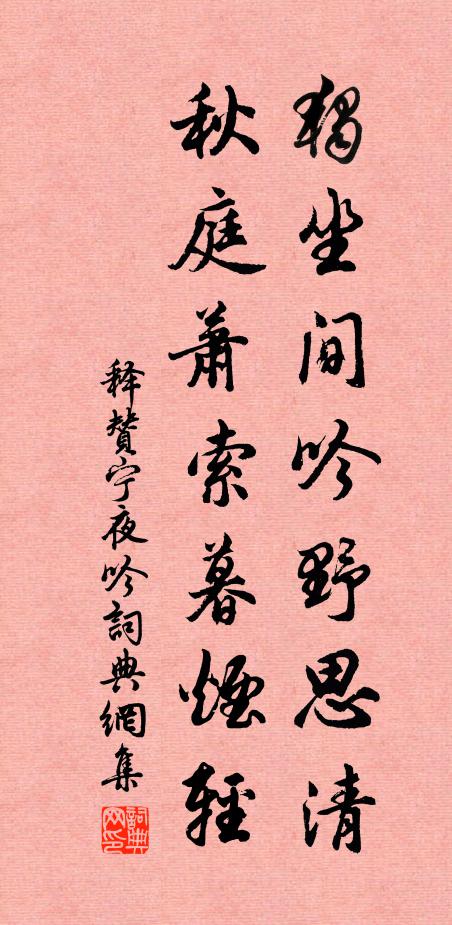 獨坐閒吟野思清
秋庭蕭索暮煙輕
释贊宁夜吟詞典網集
詞典
网印